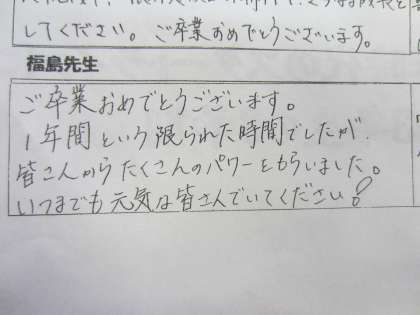 してください。ご卒業おめでとうございます。
福島先生
ご卒業おめでとうございます。
1年間という限られた時間でしたが、
皆さんからたくさんのパワーをもらいました。
いつまでも元気な皆さんでいてください!